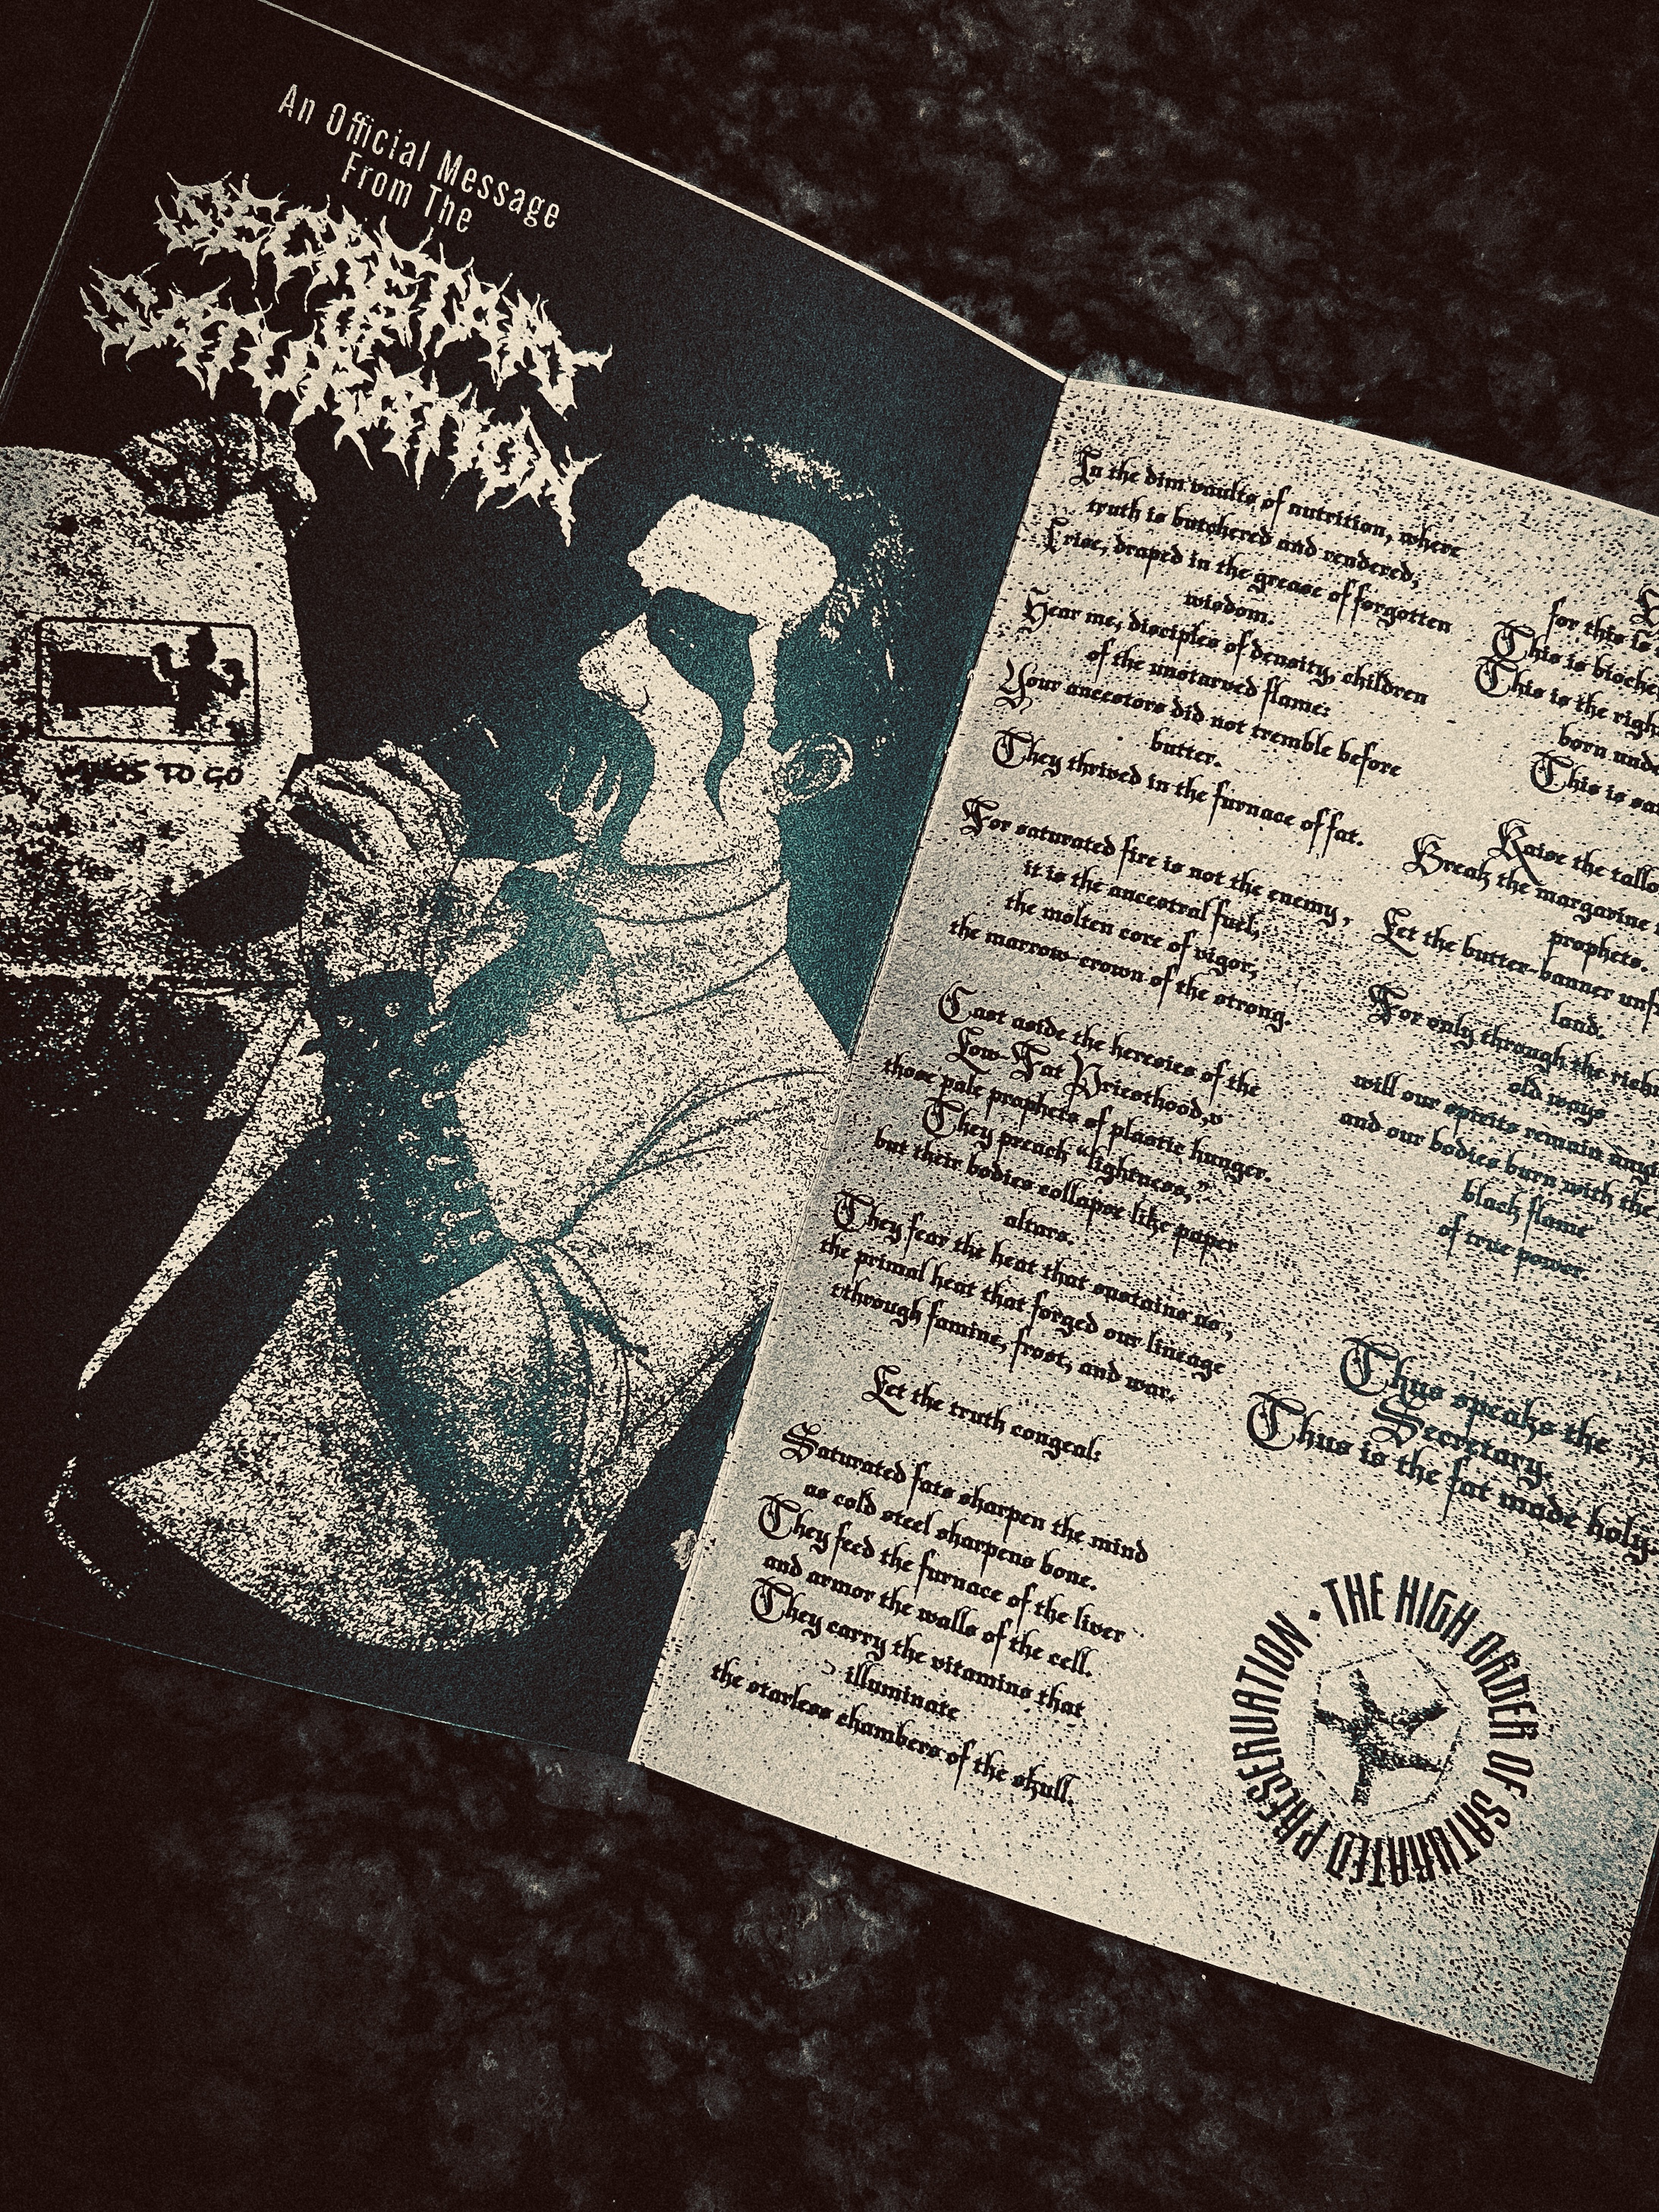 An Official Message
From The
SECRETARY
OF
SATURATION
TO GO
In the dim vaults of nutrition, where
truth is butchered and rendered,
I rise, draped in the grease of forgotten
wisdom.
Hear me, disciples of density, children
of the unstarved flame:
Your ancestors did not tremble before
butter.
They thrived in the furnace of fat.
For saturated fire is not the enemy,
it is the ancestral fuel,
the molten core of vigor,
the marrow-crown of the strong.
Cast aside the heresies of the
Low-Fat Priesthood,
those pale prophets of plastic hunger.
They preach “lightness,”
but their bodies collapse like paper
altars.
They fear the heat that sustains us,
the primal heat that forged our lineage
through famine, frost, and war.
Let the truth congeal:
Saturated fats sharpen the mind
as cold steel sharpens bone.
They feed the furnace of the liver
and armor the walls of the cell.
They carry the vitamins that
illuminate
the starless chambers of the skull.
for this is
This is
This is the
born
This is
Raise the
Break the margarine
prophets.
Let the butter-banner
land.
For only through the
old ways
will our spirits remain
and our bodies burn with the
black flame
of true power.
Thus speaks the
Secretary.
Thus is the fat made holy.
THE HIGH ORDER OF SATURATED PRESERVATION •